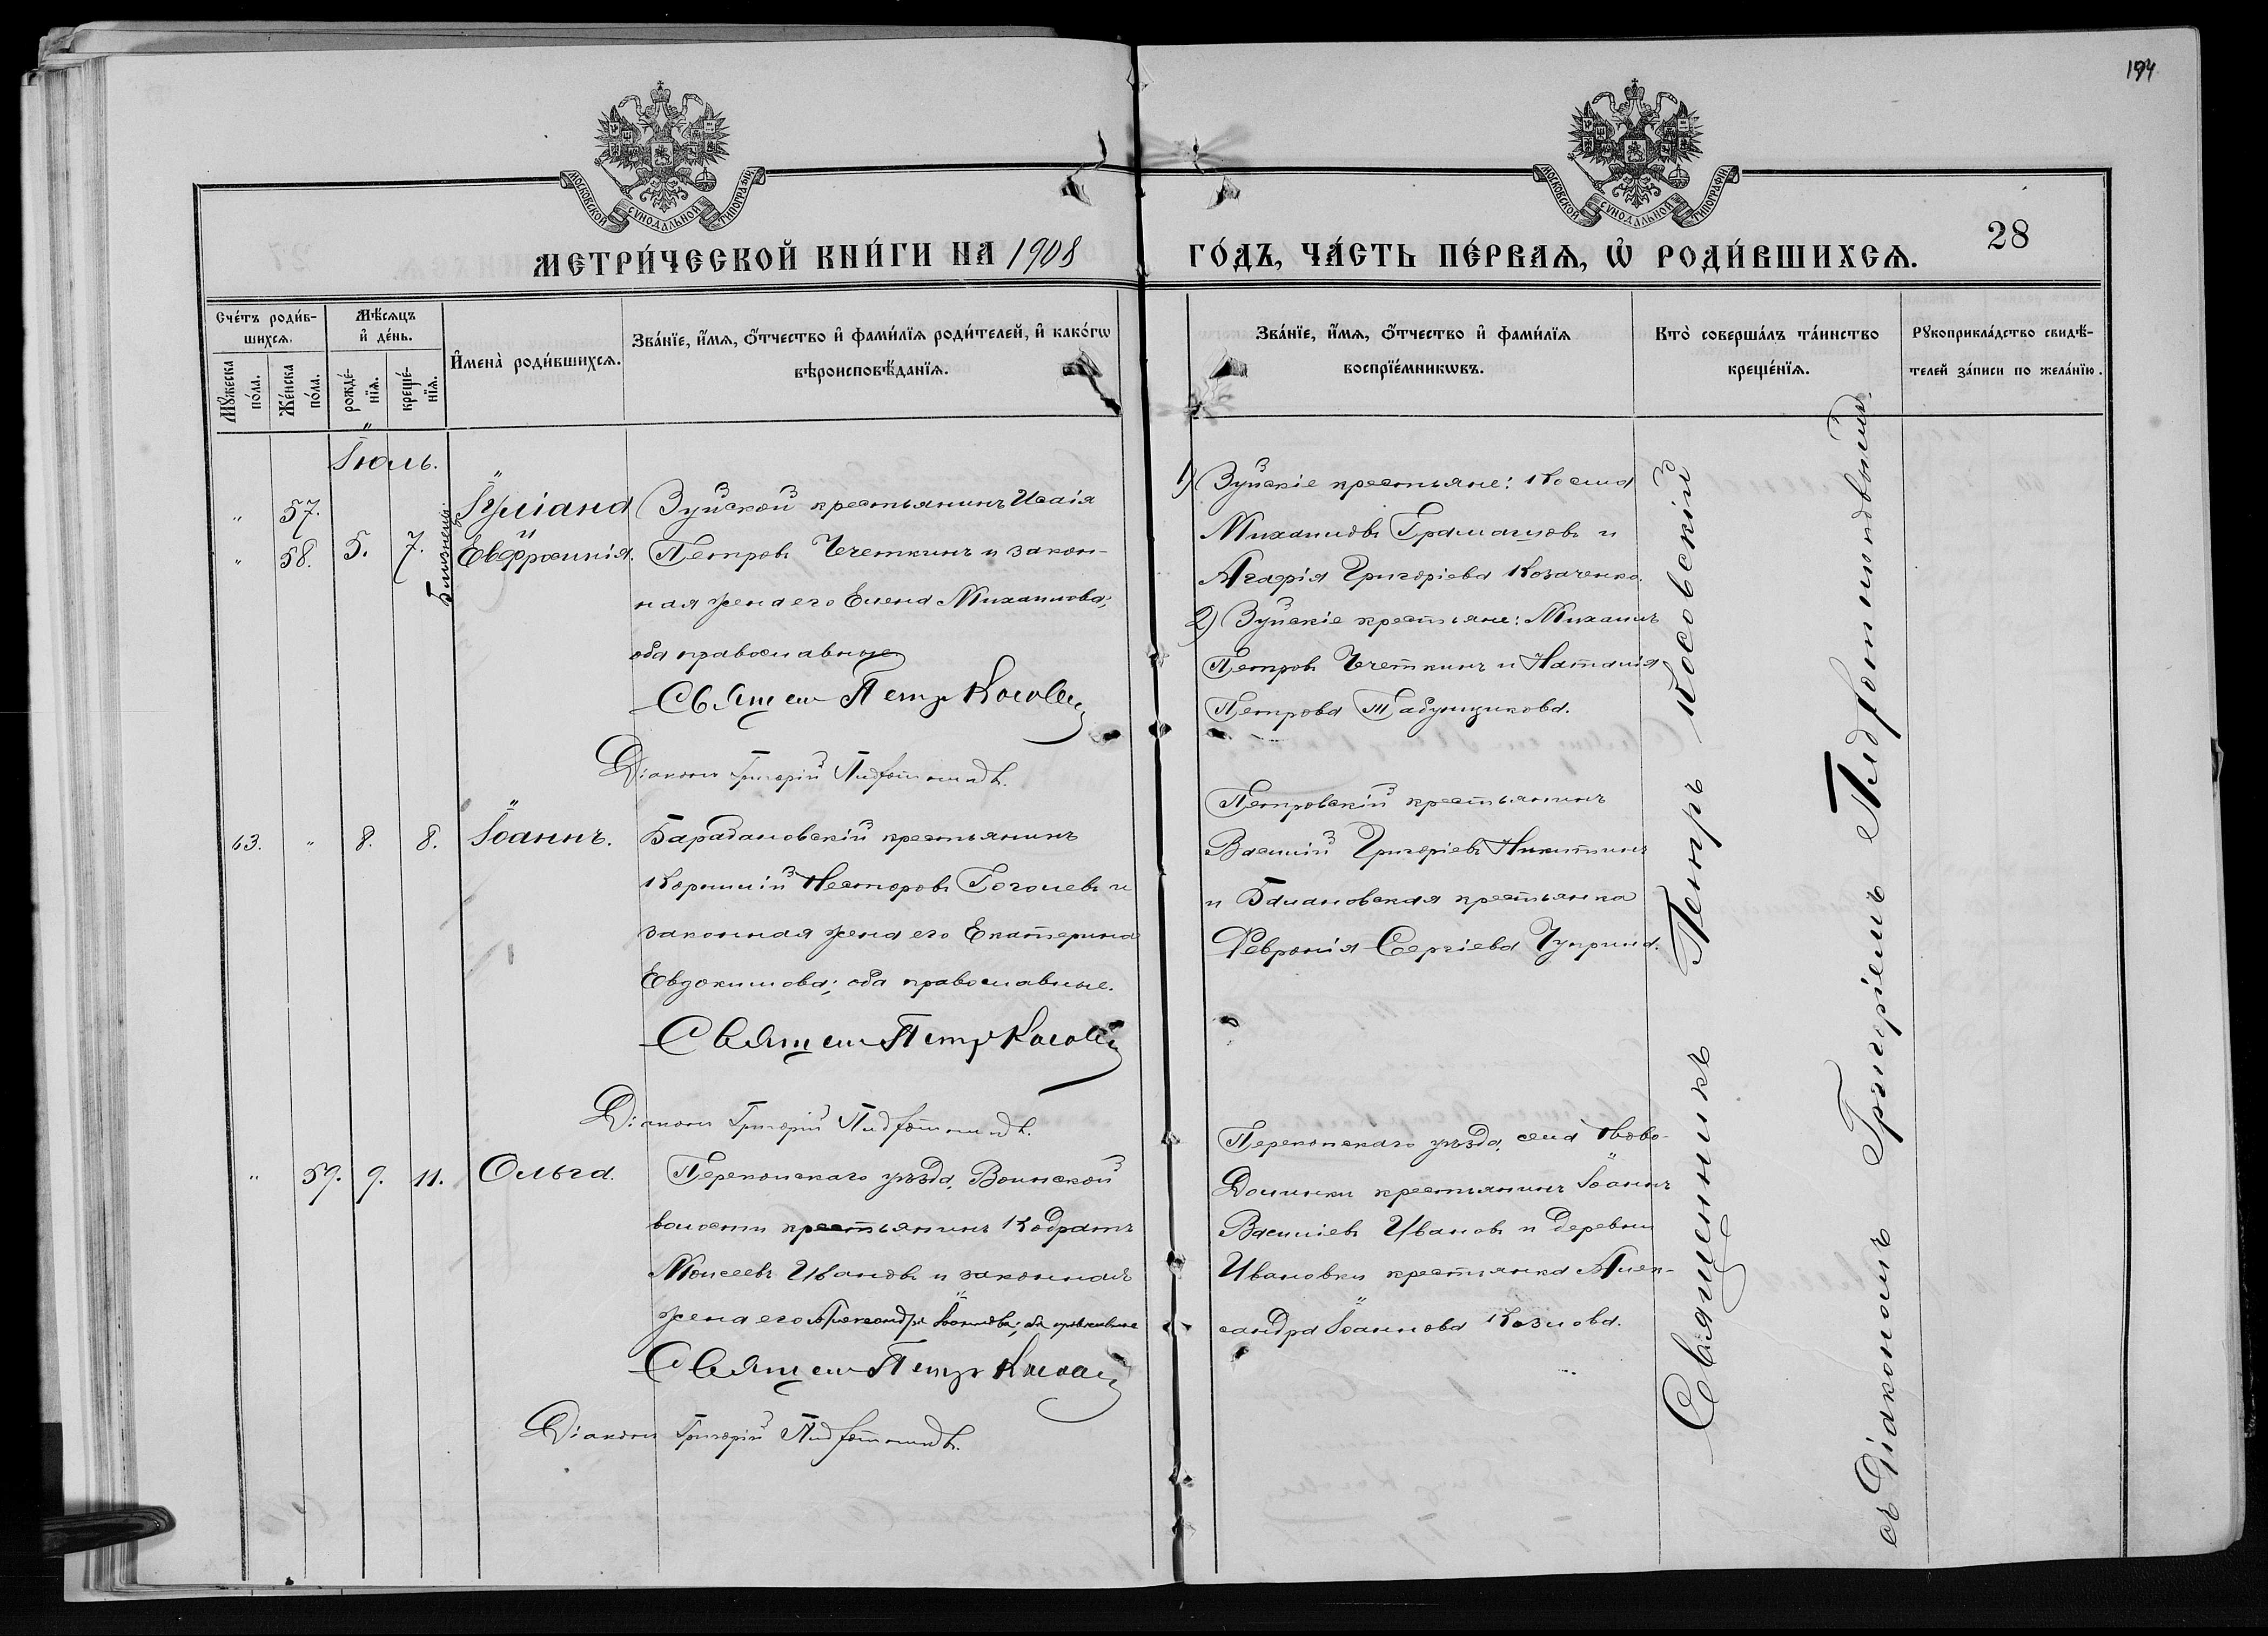 194
МОСКОВСКОЙ СУНОДАЛЬНОЙ ТИПОГРАФІИ
МОСКОВСКОЙ СУНОДАЛЬНОЙ ТИПОГРАФІИ
28
МЕТРИ́ЧЕСКОЙ КНИ́ГИ НА 1908
ГО́ДЪ, ЧА́СТЬ ПЕ́РВАѦ, Ѡ҆ РОДИ́ВШИХСѦ.
Сче́тъ роди́в-
шихсѧ.
Мꙋ́жеска по́ла.
Же́нска по́ла.
Мѣ́сѧцъ
и҆ де́нь.
рожде́-
нїѧ.
креще́-
нїѧ.
И҆мена̀ роди́вшихсѧ.
Зва́нїе, и҆́мѧ, ѻ҆́тчество и҆ фами́лїѧ роди́телей, и҆ како́гѡ
вѣроисповѣ́данїѧ.
Зва́нїе, и҆́мѧ, ѻ҆́тчество и҆ фами́лїѧ
воспрїе́мникѡвъ.
Кто̀ соверша́лъ та́инство
креще́нїѧ.
Рꙋкоприкла́дство свидѣ́-
телей за́писи по жела́нїю.
Іюль.
" 57.
" 58. 5. 7. Близнецы
Іуліана
и
Евфросинія.
Зуйской крестьянинъ Исаія
Петровъ Четкинъ и закон-
ная жена его Елена Михаилова;
оба православные
Священ Петръ Косовскій
Діаконъ Григорій
1) Зуйскіе крестьяне: Косма
Михаиловъ и
Агафія Григоріева Козаченко.
2) Зуйскіе крестьяне: Михаилъ
Петровъ Четкинъ и Наталія
Петрова Табунщикова.
63. " 8. 8. Іоаннъ.
Барабановскій крестьянинъ
Корнилій Несторовъ Гоголевъ и
законная жена его Екатерина
Евдокимова; оба православные.
Священ Петръ Косовскій
Діаконъ Григорій
Петровскій крестьянинъ
Василій Григоріевъ Никитинъ
и крестьянка
Февронія Сергіева Чуприна.
" 59. 9. 11. Ольга.
Перекопскаго уѣзда, Воинской
волости крестьянинъ Кодратъ
Моисеевъ Ивановъ и законная
жена его Александра Іоаннова; оба православные
Священ Петръ Косовскій
Діаконъ Григорій
Перекопскаго уѣзда, села Ново-
крестьянинъ Іоаннъ
Василіевъ Ивановъ и деревни
Ивановки крестьянка Алек-
сандра Іоаннова Козлова.
Священникъ Петръ Косовскій
съ Діакономъ Григоріемъ